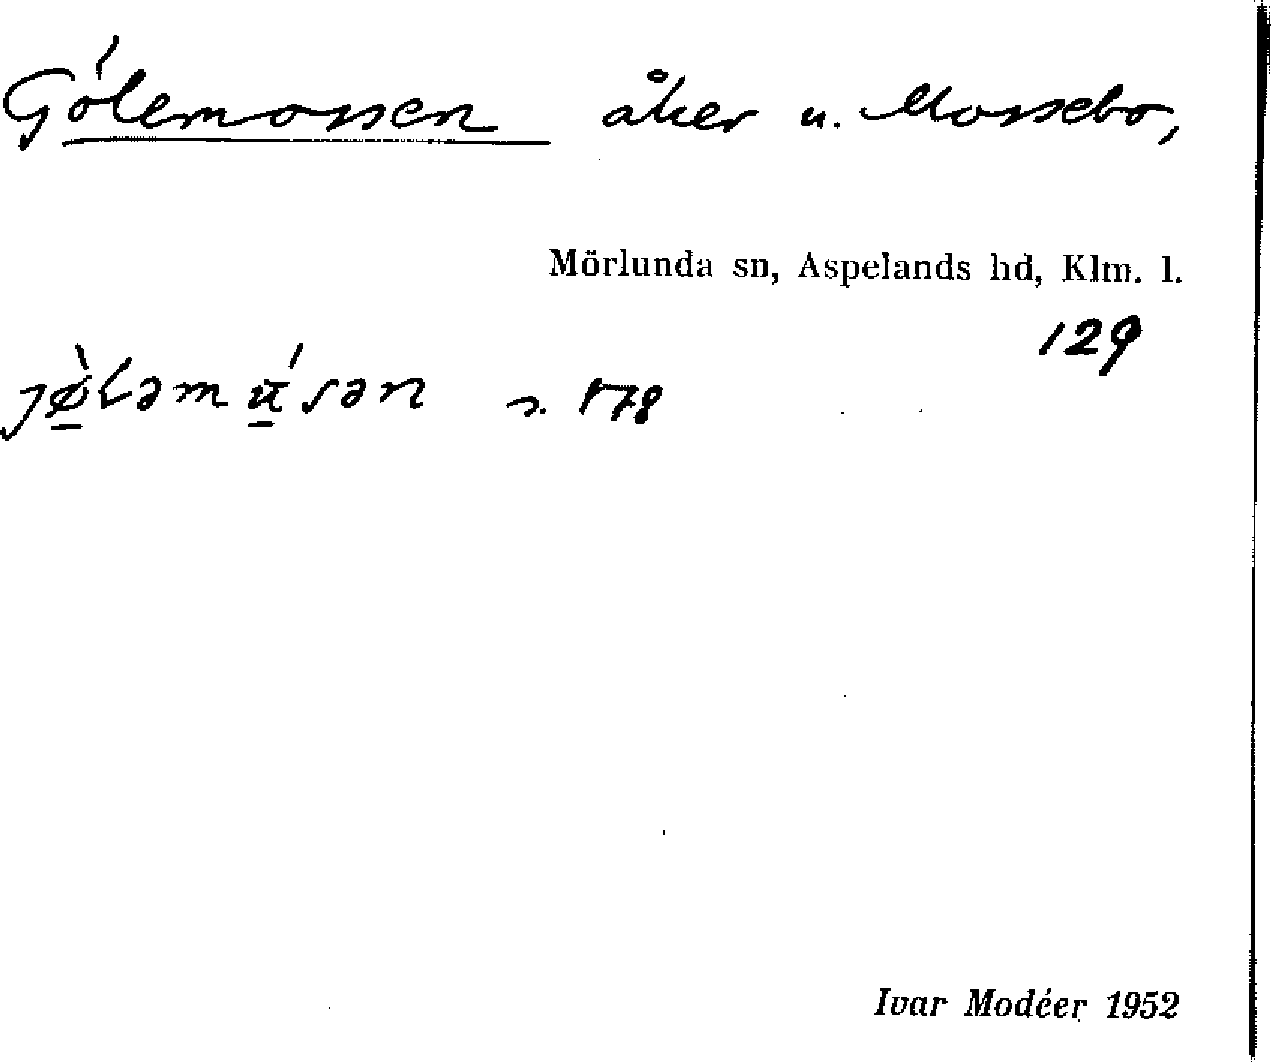 Gölemossen åker u. Mossebo,
Mörlunda sn, Aspelands hd, Klm. l.
129
s. 178
Ivar Modéer 1952